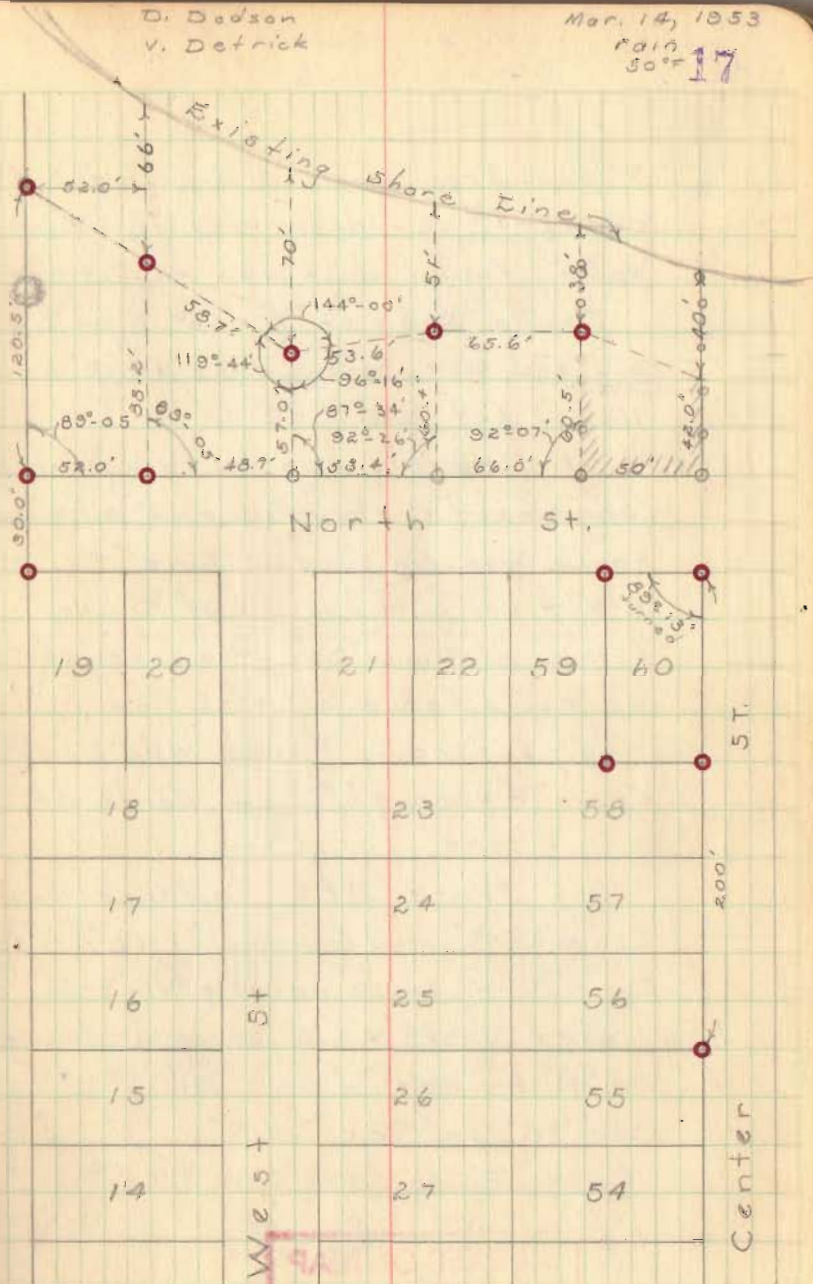 D. Dodson
V. Detrick
Mar. 14, 1953
rain
50°F
17
Existing Shore Line
66'
52.0'
70'
51'
38'
40'
144°-00'
58.7'
119°-44'
53.6'
96°-16'
65.6'
120.5'
88.2'
57.0'
60.4'
60.5'
42.0'
89°-05'
89°-05'
87°-34'
92°-26'
92°07'
52.0'
48.7'
53.4'
66.0'
50'
30.0'
North St.
89°13'
turned
19 20 21 22 59 60
18 23 58
17 24 57
16 25 56
15 26 55
14 27 54
West St
200'
Center ST.